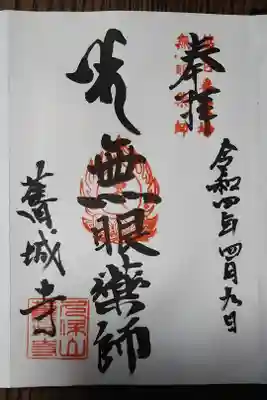 奉拝
令和四年四月九日
無眼薬師
舊城寺